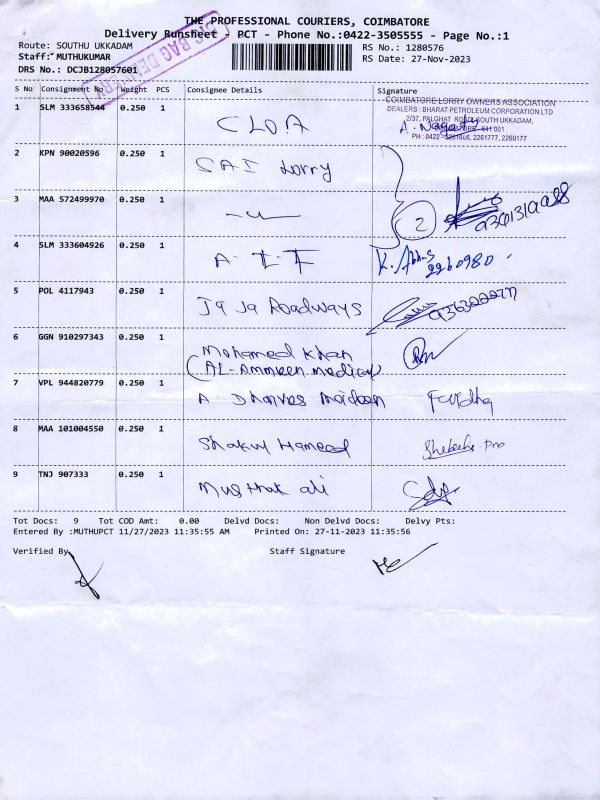 THE PROFESSIONAL COURIERS, COIMBATORE
Delivery Runsheet - PCT - Phone No.:0422-3505555 - Page No.:1
Route: SOUTHU UKKADAM
RS No.: 1280576
Staff: MUTHUKUMAR
RS Date: 27-Nov-2023
DRS No.: DCJB128057601
BAG DELIVERY
S No Consignment No Weight PCS Consignee Details Signature
1 SLM 333658544 0.250 1 CLOA
COIMBATORE LORRY OWNERS ASSOCIATION
DEALERS : BHARAT PETROLEUM CORPORATION LTD
2/37, PALGHAT ROAD, SOUTH UKKADAM,
641 001
2261777, 2260177
2 KPN 90020596 0.250 1 SAI Lorry
3 MAA 572499970 0.250 1 - u -
2
4 SLM 333604926 0.250 1 A. I. F
5 POL 4117943 0.250 1 Ja Ja Roadways
6 GGN 910297343 0.250 1 Mohamed Khan
(AL-Ammeen medical)
7 VPL 944820779 0.250 1 A.
8 MAA 101004550 0.250 1 Shakul Hameed
9 TNJ 907333 0.250 1 Musthak ali
Tot Docs: 9 Tot COD Amt: 0.00 Delvd Docs: Non Delvd Docs: Delvy Pts:
Entered By :MUTHUPCT 11/27/2023 11:35:55 AM Printed On: 27-11-2023 11:35:56
Verified By
Staff Signature